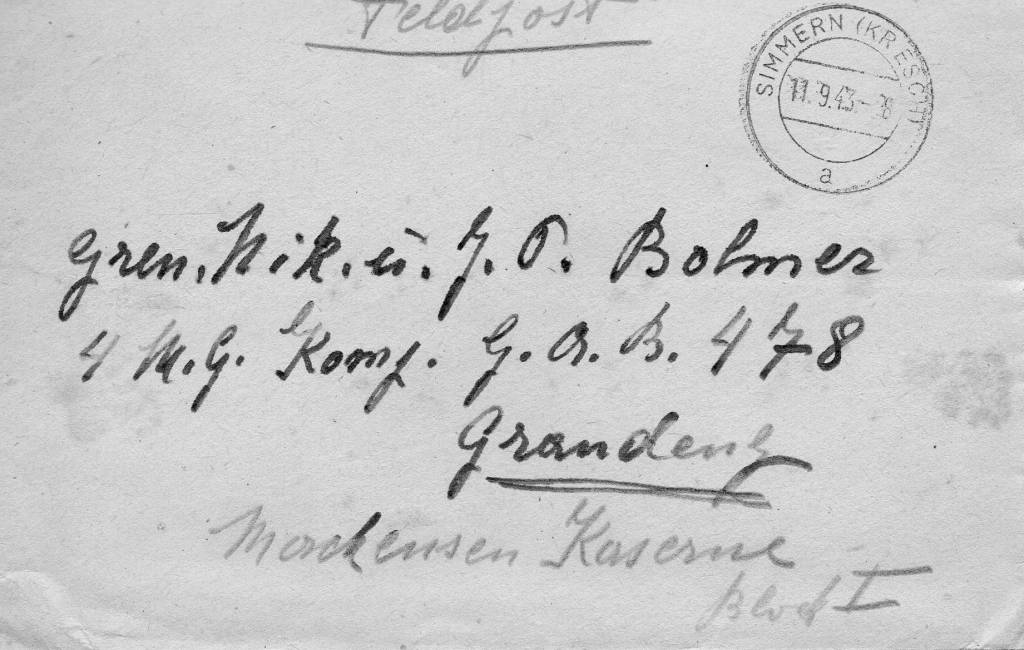 Feldpost
SIMMERN (KR ESCH)
11.9.43.-8
a
Gren. Nik. u. J. P. Bolmer
4 M.G. Komp. G. A. B. 478
Graudenz
Mackensen Kaserne
Block I